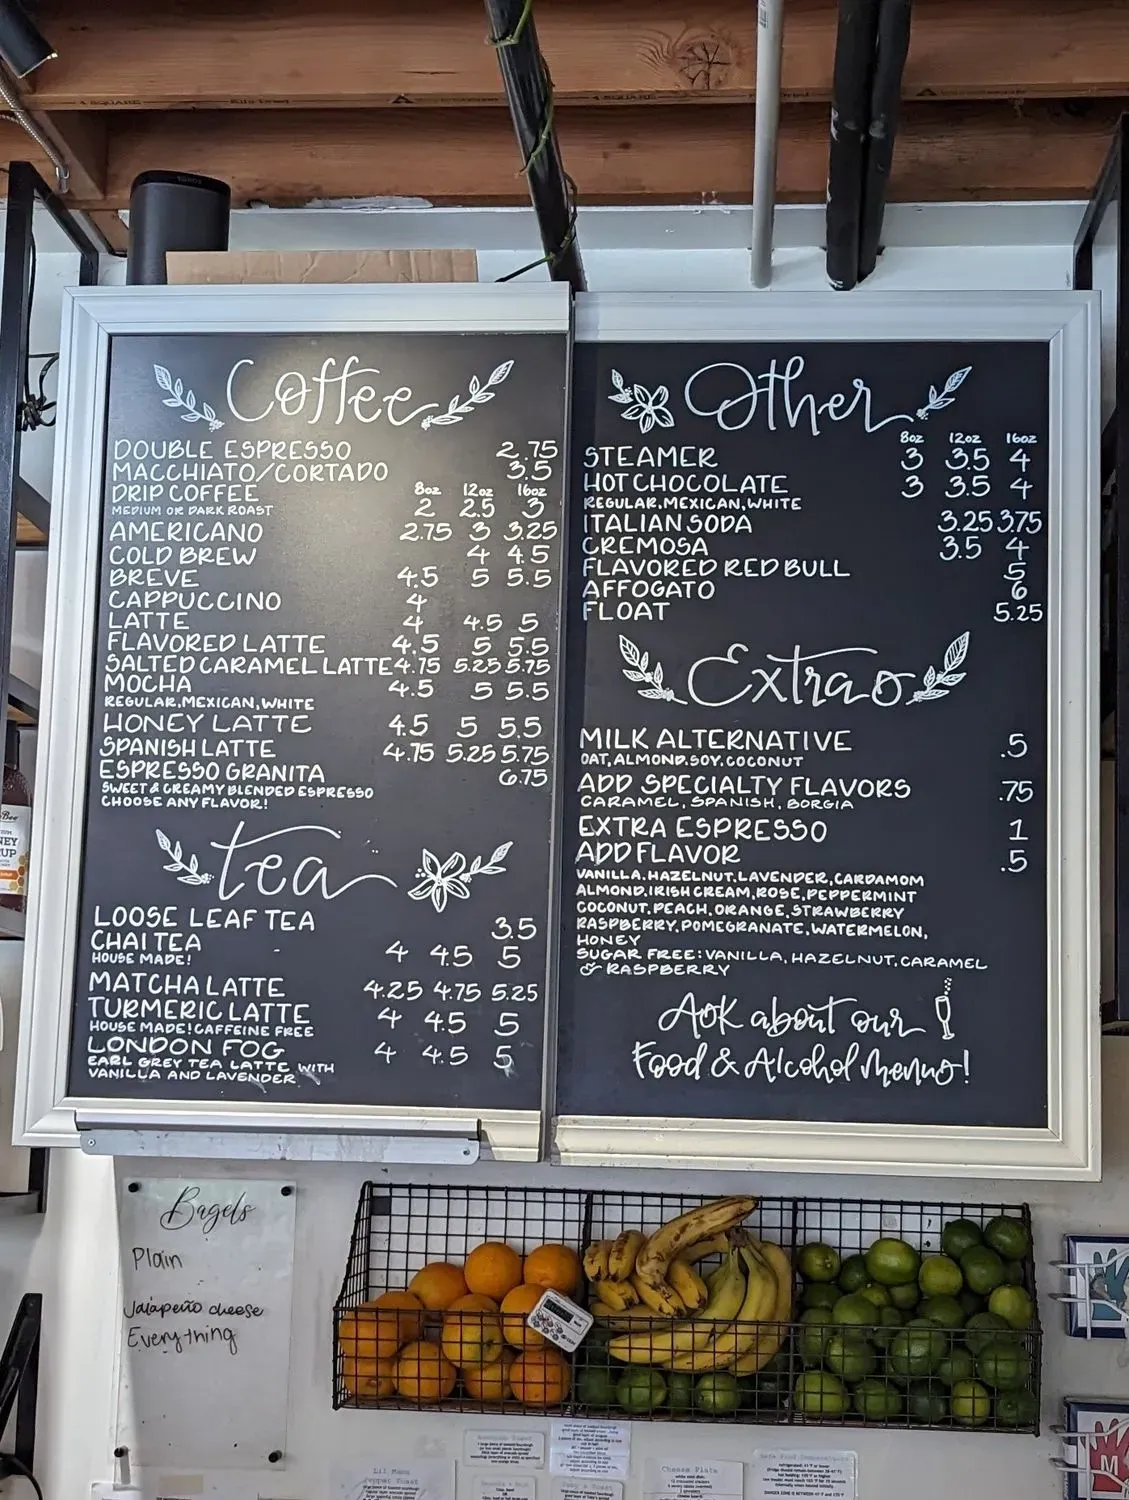 SONOS
Coffee
DOUBLE ESPRESSO 2.75
MACCHIATO/CORTADO 3.5
DRIP COFFEE 8oz 12oz 16oz
MEDIUM OR DARK ROAST 2 2.5 3
AMERICANO 2.75 3 3.25
COLD BREW 4 4.5
BREVE 4.5 5 5.5
CAPPUCCINO 4
LATTE 4 4.5 5
FLAVORED LATTE 4.5 5 5.5
SALTED CARAMEL LATTE 4.75 5.25 5.75
MOCHA 4.5 5 5.5
REGULAR, MEXICAN, WHITE
HONEY LATTE 4.5 5 5.5
SPANISH LATTE 4.75 5.25 5.75
ESPRESSO GRANITA 6.75
SWEET & CREAMY BLENDED ESPRESSO
CHOOSE ANY FLAVOR!
tea
LOOSE LEAF TEA 3.5
CHAI TEA 4 4.5 5
HOUSE MADE!
MATCHA LATTE 4.25 4.75 5.25
TURMERIC LATTE 4 4.5 5
HOUSE MADE! CAFFEINE FREE
LONDON FOG 4 4.5 5
EARL GREY TEA LATTE WITH
VANILLA AND LAVENDER
Other
8oz 12oz 16oz
STEAMER 3 3.5 4
HOT CHOCOLATE 3 3.5 4
REGULAR, MEXICAN, WHITE
ITALIAN SODA 3.25 3.75
CREMOSA 3.5 4
FLAVORED RED BULL 5
AFFOGATO 6
FLOAT 5.25
Extras
MILK ALTERNATIVE .5
OAT, ALMOND, SOY, COCONUT
ADD SPECIALTY FLAVORS .75
CARAMEL, SPANISH, BORGIA
EXTRA ESPRESSO 1
ADD FLAVOR .5
VANILLA, HAZELNUT, LAVENDER, CARDAMOM
ALMOND, IRISH CREAM, ROSE, PEPPERMINT
COCONUT, PEACH, ORANGE, STRAWBERRY
RASPBERRY, POMEGRANATE, WATERMELON,
HONEY
SUGAR FREE: VANILLA, HAZELNUT, CARAMEL
& RASPBERRY
Ask about our
Food & Alcohol Menus!
Bagels
Plain
Jalapeño cheese
Everything
Cheese Plate
M